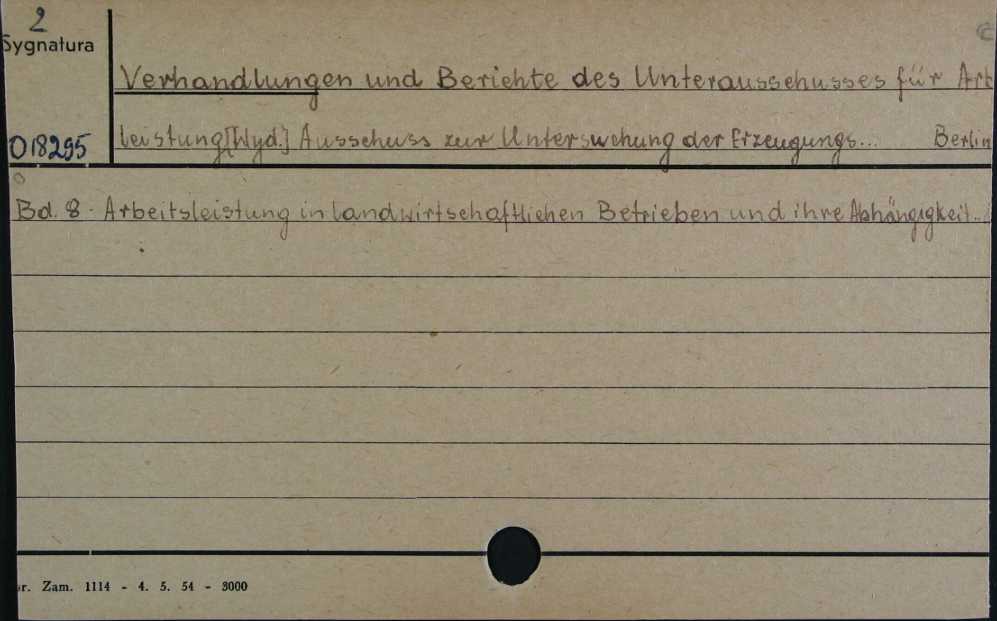 2
Sygnatura
Verhandlungen und Berichte des Unterausschusses für Arb
018295
leistung [Wyd.] Ausschuss zur Untersuchung der Erzeugungs... Berlin
Bd. 8. Arbeitsleistung in landwirtschaftlichen Betrieben und ihre Abhängigkeit...
r. Zam. 1114 - 4. 5. 54 - 3000